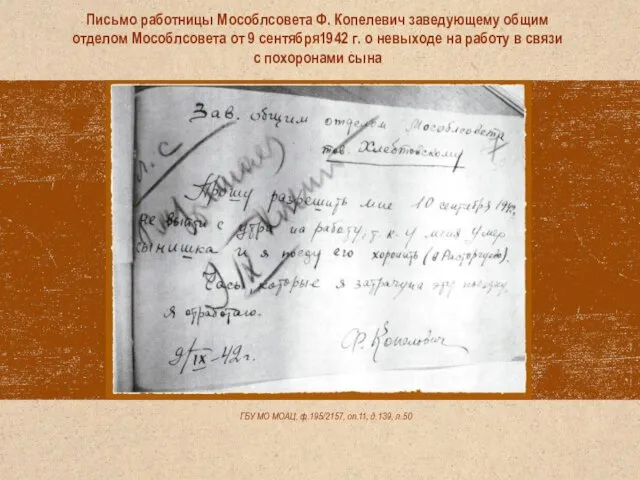 Письмо работницы Мособлсовета Ф. Копелевич заведующему общим
отделом Мособлсовета от 9 сентября1942 г. о невыходе на работу в связи
с похоронами сына
Зав. общим отделом Мособлсовета
тов. Хлебтовскому
Л. С
Прошу разрешить мне 10 сентября 1942г.
не выйти с утра на работу, т. к. у меня умер
сынишка и я поеду его хоронить (в Расторгуево).
Часы, которые я затрачу на эту поездку,
я отработаю.
9/IX-42г.
Ф. Копелович
ГБУ МО МОАЦ, ф.195/2157, оп.11, д.139, л.50